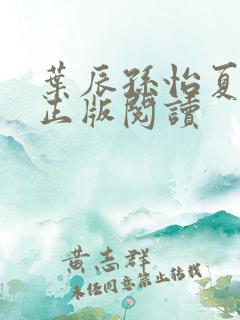 葉辰孫怡夏
正版閱讀
黃志群
未經同意禁止轉載